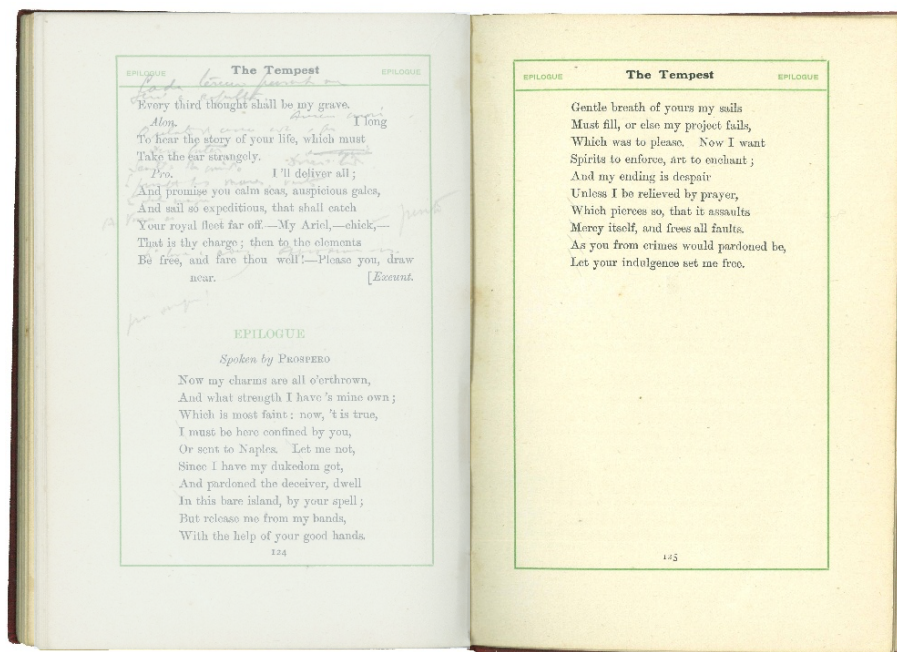 EPILOGUE The Tempest EPILOGUE
Every third thought shall be my grave.
Alon. I long
To hear the story of your life, which must
Take the ear strangely.
Pro. I 'll deliver all;
And promise you calm seas, auspicious gales,
And sail so expeditious, that shall catch
Your royal fleet far off.—My Ariel,—chick,—
That is thy charge; then to the elements
Be free, and fare thou well!—Please you, draw
near. [Exeunt.
EPILOGUE
Spoken by PROSPERO
Now my charms are all o'erthrown,
And what strength I have 's mine own;
Which is most faint: now, 't is true,
I must be here confined by you,
Or sent to Naples. Let me not,
Since I have my dukedom got,
And pardoned the deceiver, dwell
In this bare island, by your spell;
But release me from my bands,
With the help of your good hands.
124
EPILOGUE The Tempest EPILOGUE
Gentle breath of yours my sails
Must fill, or else my project fails,
Which was to please. Now I want
Spirits to enforce, art to enchant;
And my ending is despair
Unless I be relieved by prayer,
Which pierces so, that it assaults
Mercy itself, and frees all faults.
As you from crimes would pardoned be,
Let your indulgence set me free.
125